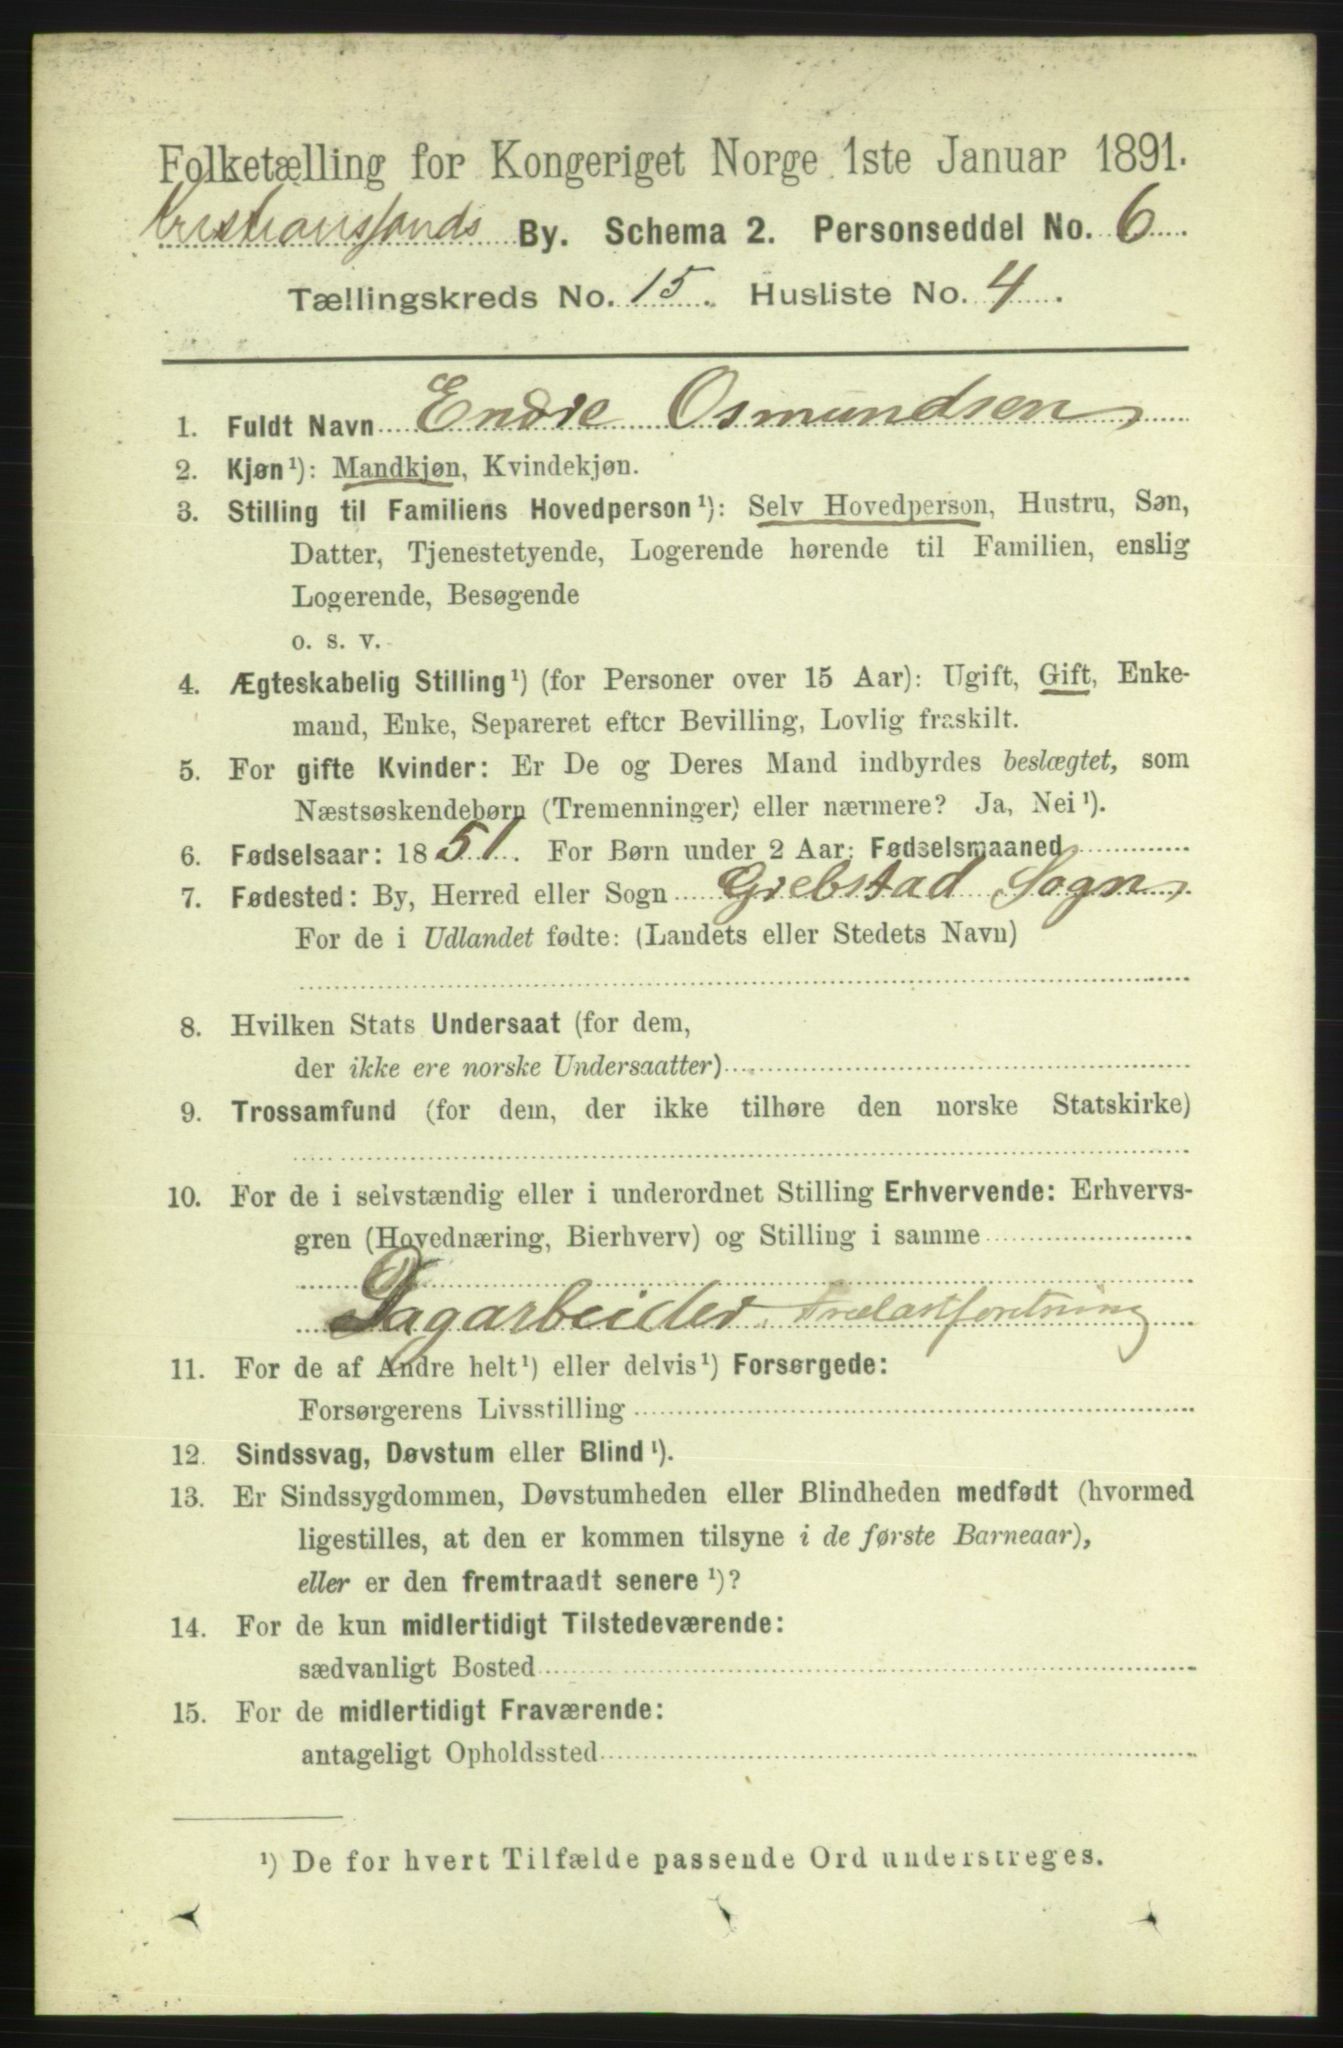 Folketælling for Kongeriget Norge 1ste Januar 1891.
Kristianssands By. Schema 2. Personseddel No. 6
Tællingskreds No. 15. Husliste No. 4
1. Fuldt Navn Endre Osmundsen
2. Kjøn¹): Mandkjøn, Kvindekjøn.
3. Stilling til Familiens Hovedperson¹): Selv Hovedperson, Hustru, Søn,
Datter, Tjenestetyende, Logerende hørende til Familien, enslig
Logerende, Besøgende
o. s. v.
4. Ægteskabelig Stilling¹) (for Personer over 15 Aar): Ugift, Gift, Enke-
mand, Enke, Separeret efter Bevilling, Lovlig fraskilt.
5. For gifte Kvinder: Er De og Deres Mand indbyrdes beslægtet, som
Næstsøskendebørn (Tremenninger) eller nærmere? Ja, Nei¹).
6. Fødselsaar: 1851. For Børn under 2 Aar: Fødselsmaaned
7. Fødested: By, Herred eller Sogn Grebstad Sogn
For de i Udlandet fødte: (Landets eller Stedets Navn)
8. Hvilken Stats Undersaat (for dem,
der ikke ere norske Undersaatter)
9. Trossamfund (for dem, der ikke tilhøre den norske Statskirke)
10. For de i selvstændig eller i underordnet Stilling Erhvervende: Erhvervs-
gren (Hovednæring, Bierhverv) og Stilling i samme
Dagarbeider. trælastforetning
11. For de af Andre helt¹) eller delvis¹) Forsørgede:
Forsørgerens Livsstilling
12. Sindssvag, Døvstum eller Blind¹).
13. Er Sindssygdommen, Døvstumheden eller Blindheden medfødt (hvormed
ligestilles, at den er kommen tilsyne i de første Barneaar),
eller er den fremtraadt senere¹)?
14. For de kun midlertidigt Tilstedeværende:
sædvanligt Bosted
15. For de midlertidigt Fraværende:
antageligt Opholdssted
¹) De for hvert Tilfælde passende Ord understreges.